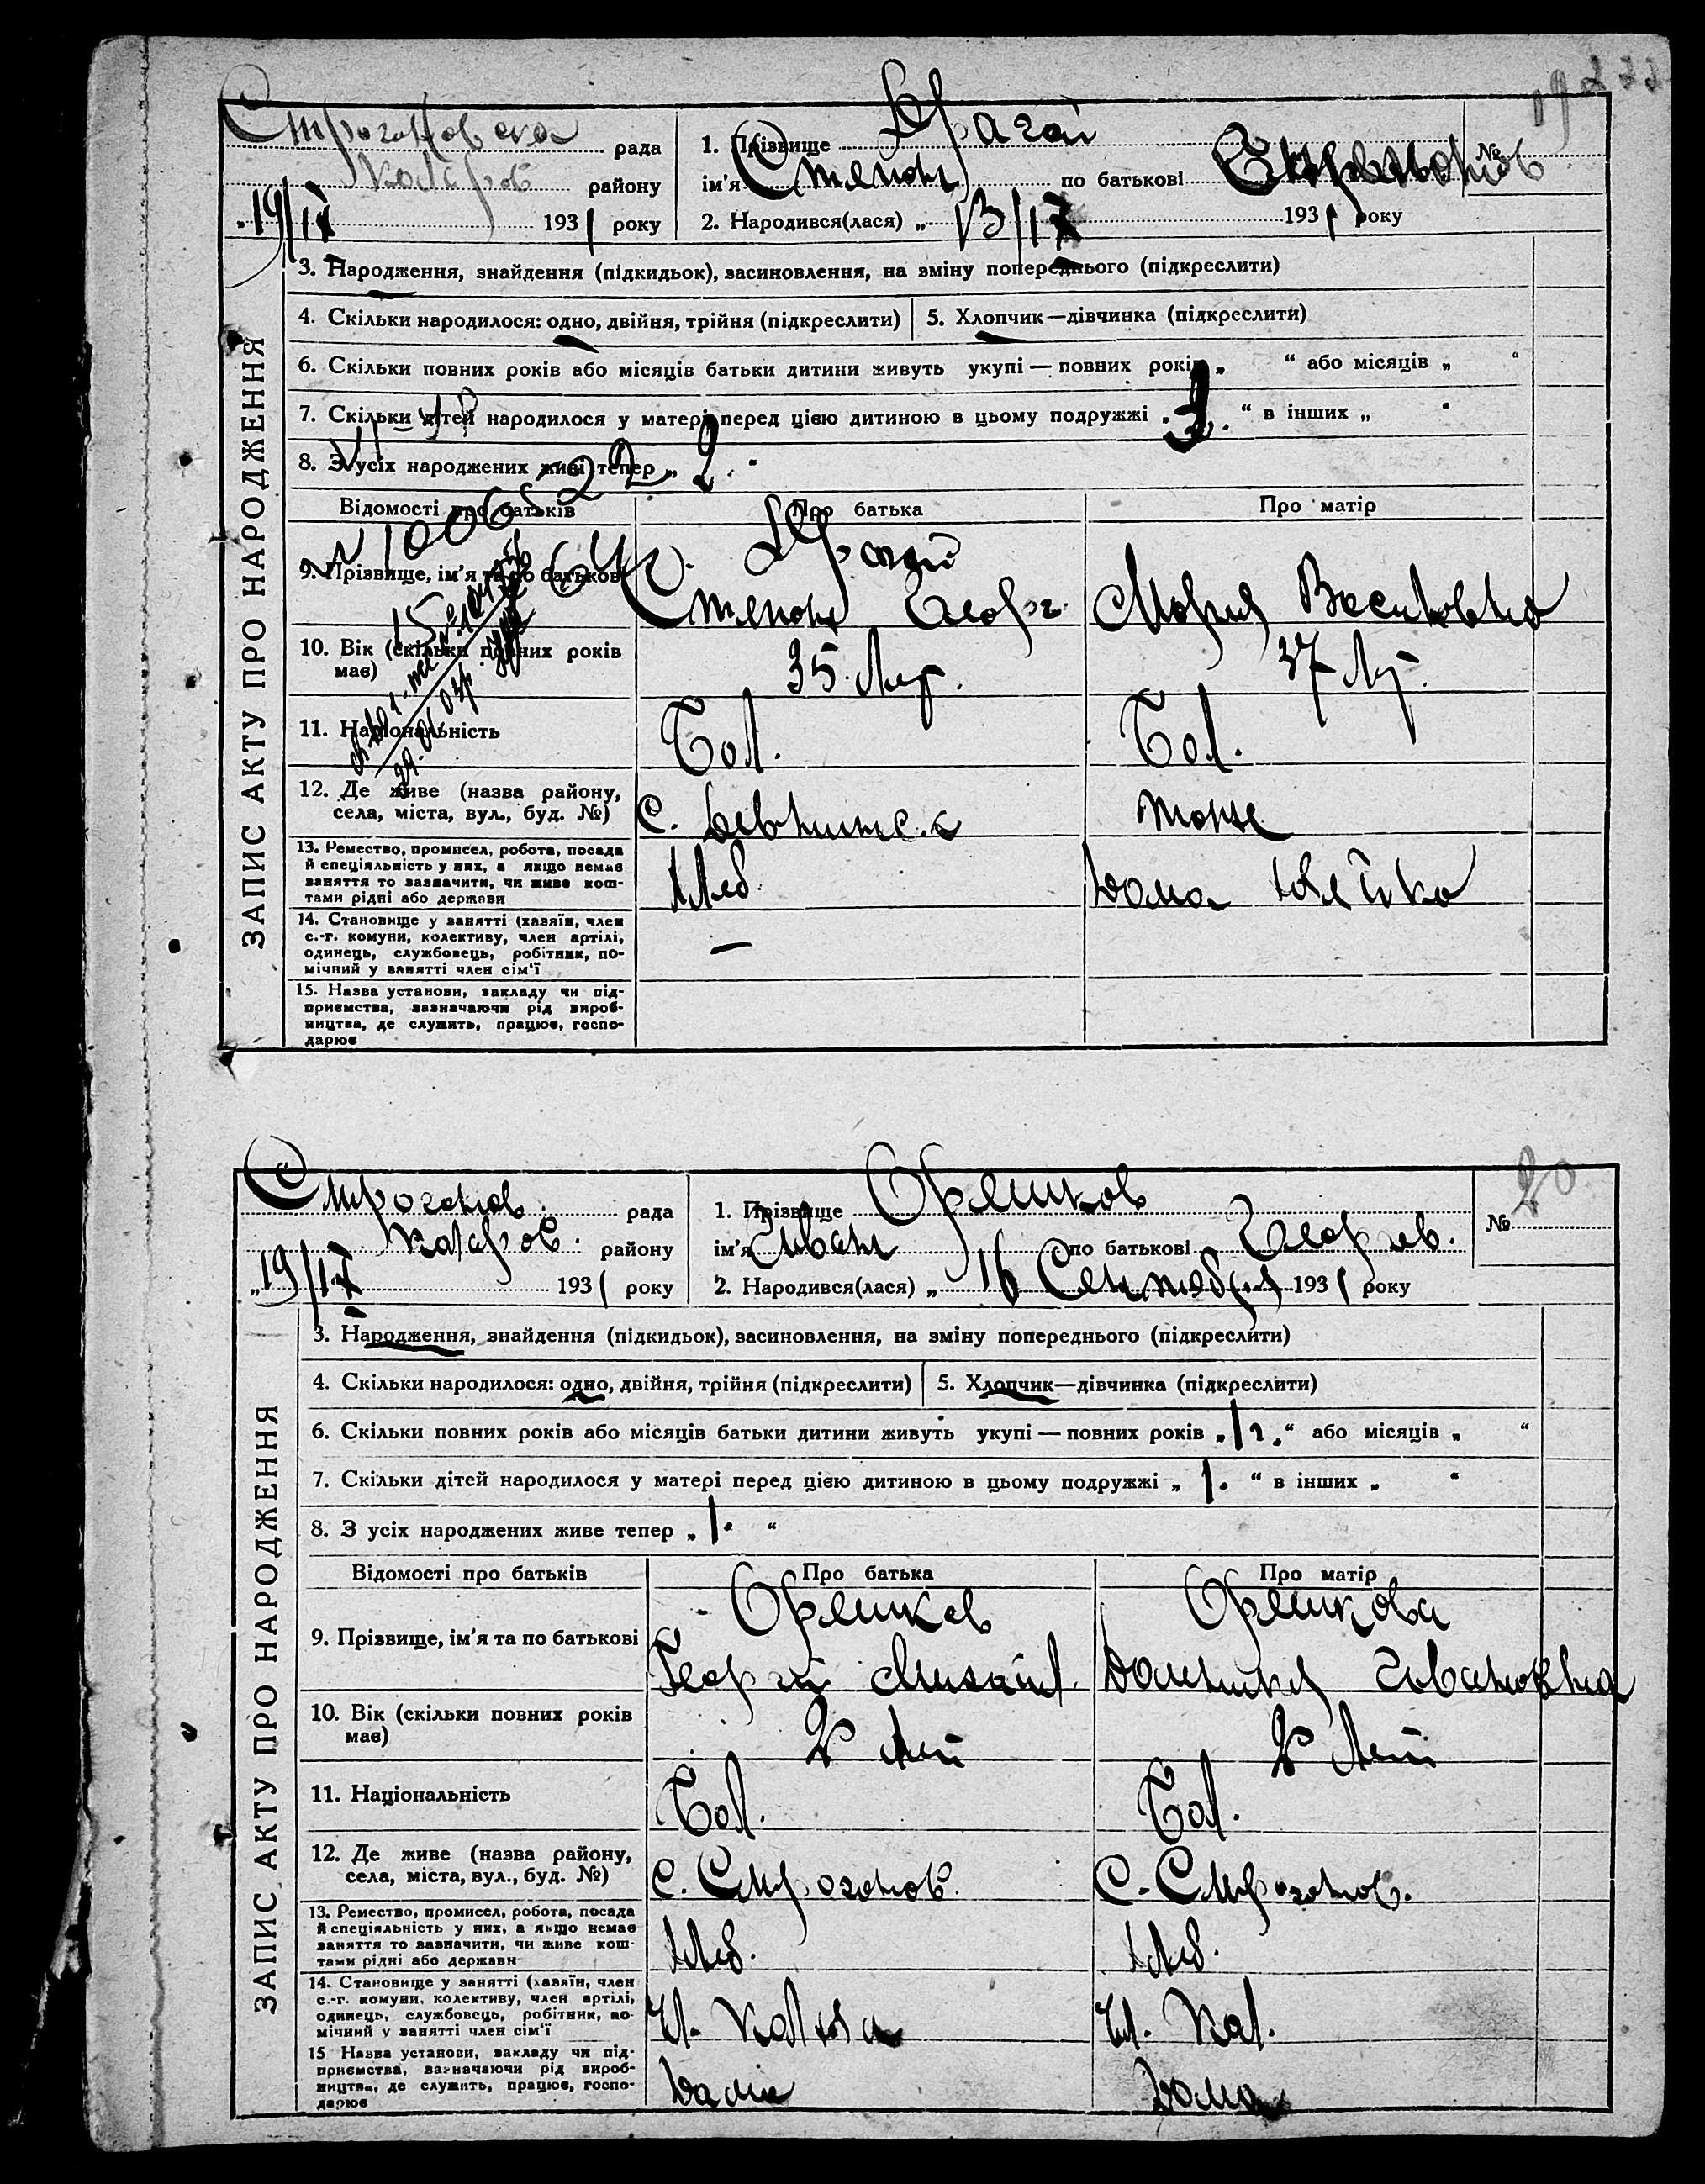 19
Строгановска рада
Коларов району
19/IX 1931 року
1. Прізвище Драгой
ім'я Степан по батькові
№
2. Народився(лася) „ 13/IX 1931 року
ЗАПИС АКТУ ПРО НАРОДЖЕННЯ
3. Народження, знайдення (підкидьок), засиновлення, на зміну попереднього (підкреслити)
4. Скільки народилося: одно, двійня, трійня (підкреслити)
5. Хлопчик—дівчинка (підкреслити)
6. Скільки повних років або місяців батьки дитини живуть укупі — повних років „ “ або місяців „ “
7. Скільки дітей народилося у матері перед цією дитиною в цьому подружжі „ “ в інших „ “
8. З усіх народжених живі тепер „ 2. “
Відомості про батьків
Про батька
Про матір
9. Прізвище, ім'я та по батькові
Драгой
Степан Георг.
Мария Васильовна
10. Вік (скільки повних років має)
35 Лет.
37 Л.
11. Національність
Бол.
Бол.
12. Де живе (назва району,
села, міста, вул., буд. №)
с.
тоже
13. Ремество, промисел, робота, посада
й спеціяльність у них, а якщо немає
заняття то зазначити, чи живе кош-
тами рідні або держави
Хлеб.
Дома
14. Становище у занятті (хазяїн, член
с.-г. комуни, колективу, член артілі,
одинець, службовець, робітник, по-
мічний у занятті член сім'ї
—
15. Назва установи, закладу чи під-
приємства, зазначаючи рід вироб-
ництва, де служить, працює, госпо-
дарює
20
Строганов. рада
Коларов. району
„19/IX 1931 року
1. Прізвище Орешков
ім'я Иван по батькові Георгиев.
№
2. Народився(лася) „ 16 Сентября 1931 року
ЗАПИС АКТУ ПРО НАРОДЖЕННЯ
3. Народження, знайдення (підкидьок), засиновлення, на зміну попереднього (підкреслити)
4. Скільки народилося: одно, двійня, трійня (підкреслити)
5. Хлопчик—дівчинка (підкреслити)
6. Скільки повних років або місяців батьки дитини живуть укупі — повних років „ “ або місяців „ “
7. Скільки дітей народилося у матері перед цією дитиною в цьому подружжі „ 1. “ в інших „ “
8. З усіх народжених живе тепер „ 1. “
Відомості про батьків
Про батька
Про матір
9. Прізвище, ім'я та по батькові
Орешков
Георгий Михаил.
Орешкова
Доменикия Ивановна
10. Вік (скільки повних років
має)
Лет
Лет
11. Національність
Бол.
Бол.
12. Де живе (назва району,
села, міста, вул., буд. №)
С. Строганов.
С. Строганов.
13. Ремество, промисел, робота, посада
й спеціяльність у них, а якщо немає
заняття то зазначити, чи живе кош-
тами рідні або держави
Хлеб.
Хлеб.
14. Становище у занятті (хазяїн, член
с.-г. комуни, колективу, член артілі,
одинець, службовець, робітник, по-
мічний у занятті член сім'ї
Чл. Колхоза
Чл. Кол.
15 Назва установи, закладу чи під-
приємства, зазначаючи рід вироб-
ництва, де служить, працює, госпо-
дарює
Дома
Дома